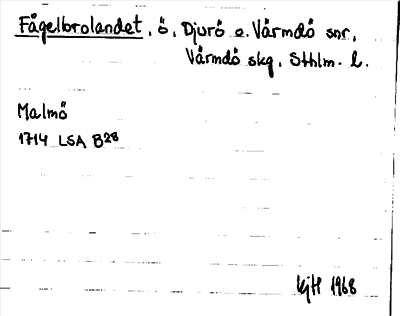 Fågelbrolandet, ö, Djurö o. Värmdö snr,
Värmdö skg, Sthlm. l.
Malmö
1714 LSA B28
KjH 1968